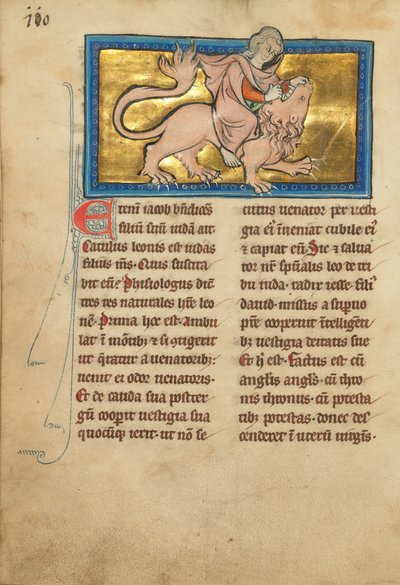 iio
Eteni iacob bndicēs
filiū suū iudā ait
Catulus leonis est iudas
filius m̄s. Cuius suscita
bit eū. Phisiologus dic̄
tres res naturales hr̄e leo
nē. Prima hec est. Ambu
lat ī mōtibꝫ & si ɔtigerit
ut q̄ratur a uenatoribꝫ.
uenit ei odor uenatoris.
Et de cauda sua poster
gū cooꝑit uestigia sua
quocūqꝫ ierit. ut nō se
cutus uenator per uesti
gia ei᷒ īueniat cubile ei᷒
& capiat eū. Sic & salua
tor nr̄ sp̄ualis leo de tri
bu iuda. radix iesse. fili᷒
dauid. missus a suꝑno
pr̄e cooperuit ītelligēti
bꝫ uestigia deitatis sue
Et h̓ est. Factus est cū
anglis angl̓s. cū thro
nis thronus. cū potesta
tibꝫ potestas. donec des
cenderet ī uterū uirgīs.